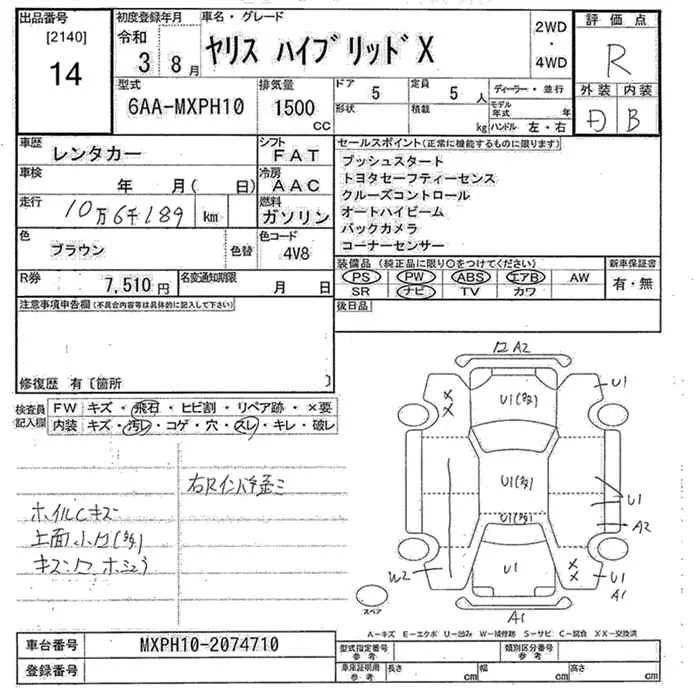 出品番号 初度登録年月 車名・グレード 評価点
[2140] 14
令和 3 8月
ヤリス ハイブリッド X
2WD ・ 4WD
R
外装 内装
B
型式 排気量 ドア 5 定員 5 人 ディーラー・並行
6AA-MXPH10 1500 CC
形状 積載 kg モデル年式 年
ハンドル 左・右
車歴 レンタカー シフト FAT
車検 年 月( 日) 冷房 AAC
走行 10万6千189 km 燃料 ガソリン
色 ブラウン 色替 色コード 4V8
R券 7,510円 名変通知期限 月 日
注意事項申告欄(不具合内容等は具体的に記入して下さい)
修復歴 有〔箇所 〕
セールスポイント(正常に機能するものに限ります)
プッシュスタート
トヨタセーフティーセンス
クルーズコントロール
オートハイビーム
バックカメラ
コーナーセンサー
装備品(純正品に限り○をつけてください) 新車保証書
PS PW ABS エアB AW 有・無
SR ナビ TV カワ
後日品
検査員記入欄
FW キズ・飛石・ヒビ割・リペア跡・×要
内装 キズ・汚レ・コゲ・穴・スレ・キレ・破レ
ホイルCキズ
A2
U1
U1
U1
U1
U1
A2
W2
U1
U1
A1
A1
スペア
A-キズ E-エクボ U-凹み W-補修跡 S-サビ C-腐食 XX-交換済
車台番号 MXPH10-2074710
登録番号
型式指定番号 参考 類別区分番号 参考
車庫証明用 参考 長さ cm 幅 cm 高さ cm